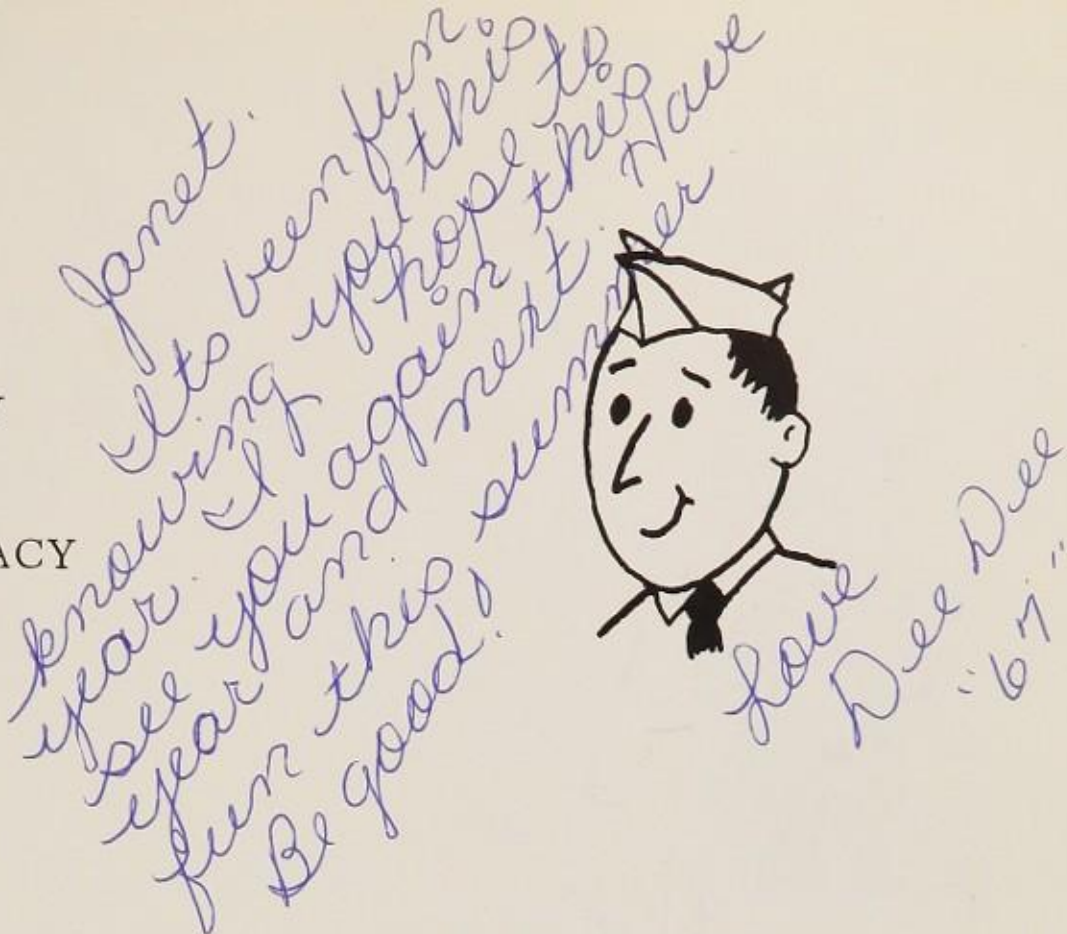 Janet.
Its been fun.
knowing you this
year. I hope to
see you again this
year and next. Have
fun this summer
Be good!
Love
Dee Dee
"67"
ACY